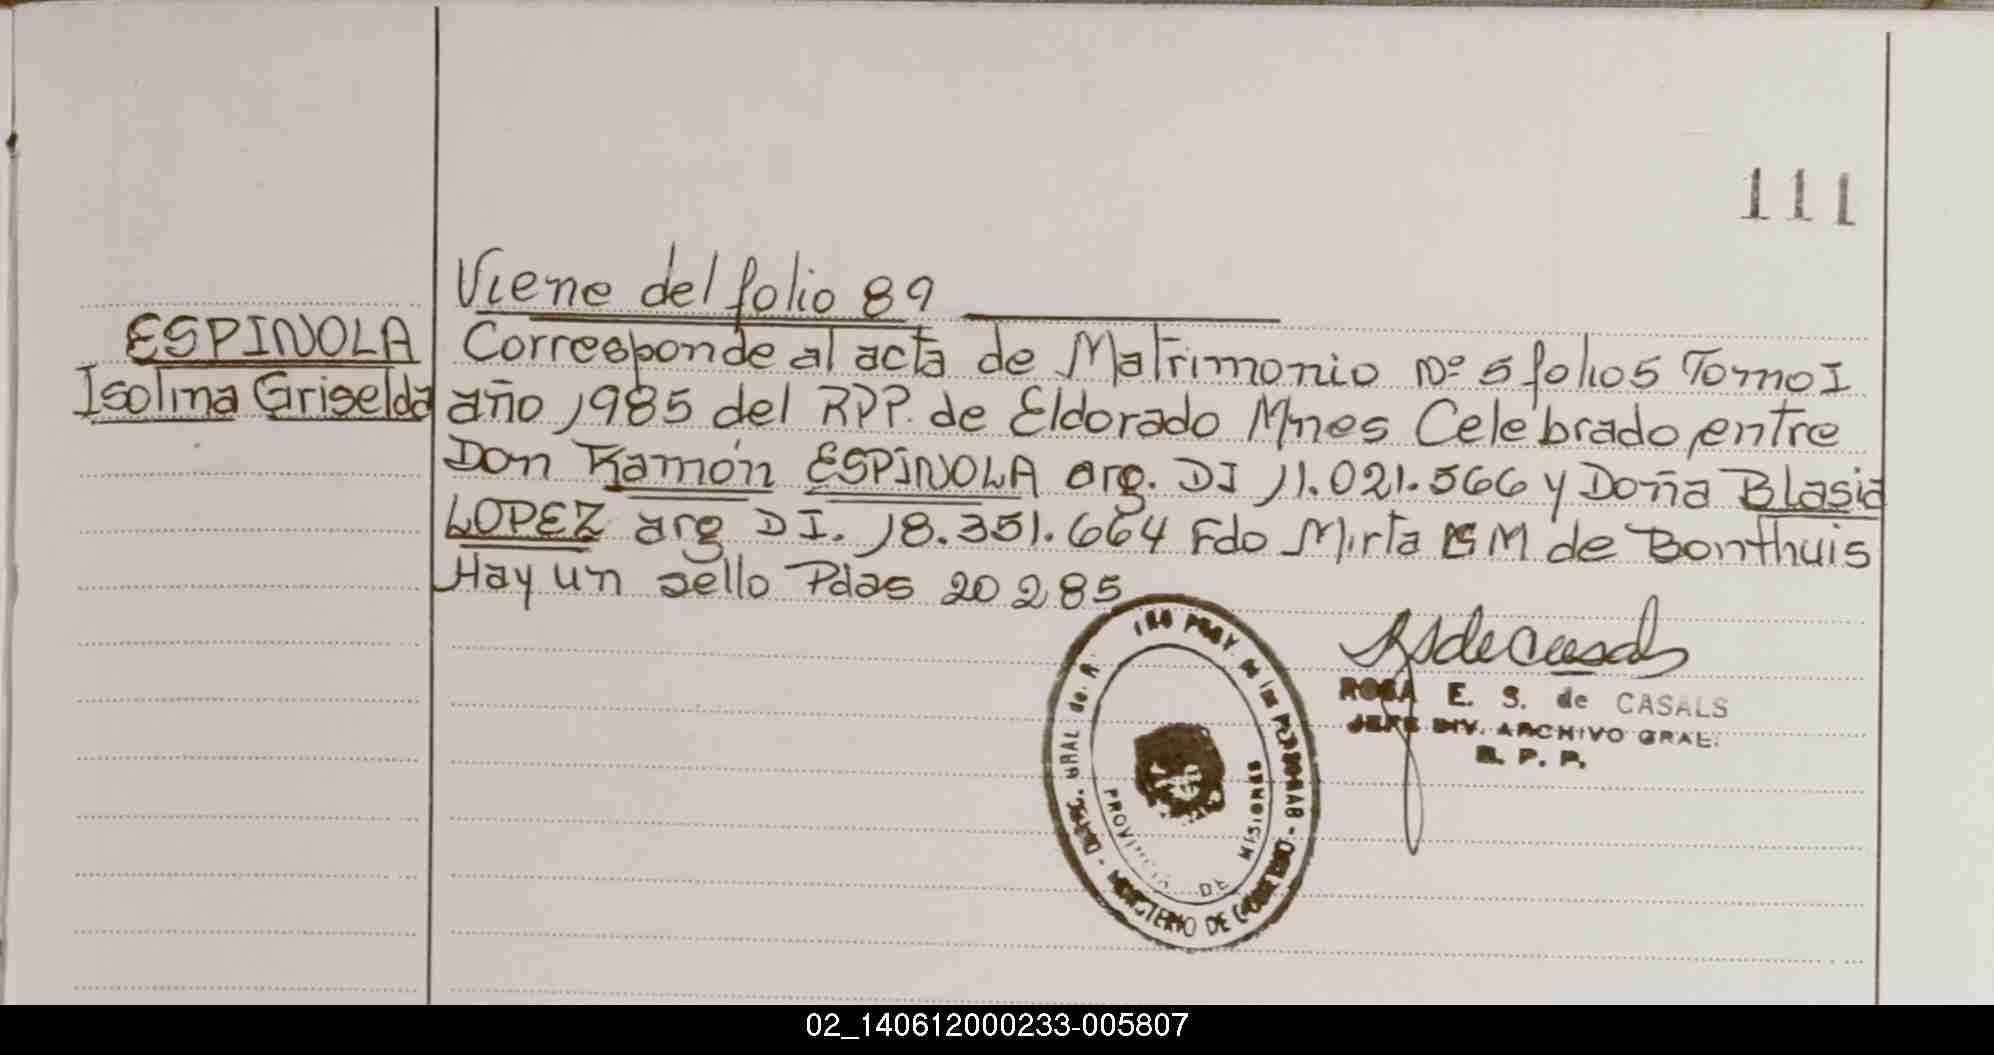 111
Viene del folio 89
ESPINOLA
Isolina Griselda
Corresponde al acta de Matrimonio Nº 5 folio 5 Tomo I
año 1985 del RPP. de Eldorado Mnes Celebrado entre
Don Ramón ESPINOLA arg. DI 11.021.566 y Doña Blasia
LOPEZ arg DI. 18.351.664 Fdo Mirta M de Bonthuis
Hay un sello Pdas 20 2 85
ROSA E. S. de CASALS
JEFE DIV. ARCHIVO GRAL.
R. P. P.
PROVINCIA DE MISIONES
MINISTERIO DE
02_140612000233-005807